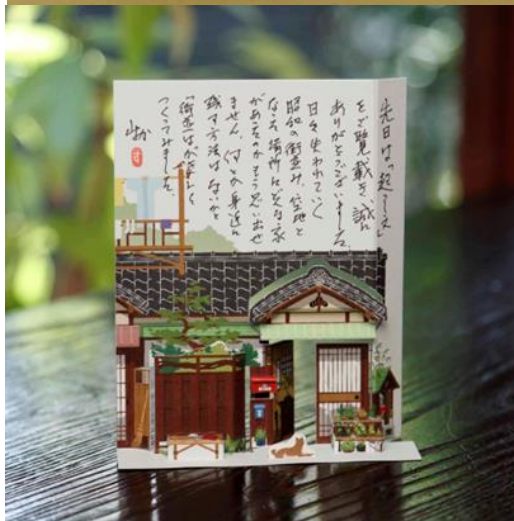 先日は「起こし文」
をご覧戴き、誠に
ありがとうございました。
日々失われていく
昭和の街並み、空地と
なった場所にどんな家
があったのかもう思い出せ
ません。何とか身近に
残す方法はないかと
「街並」はが
つくってみました。